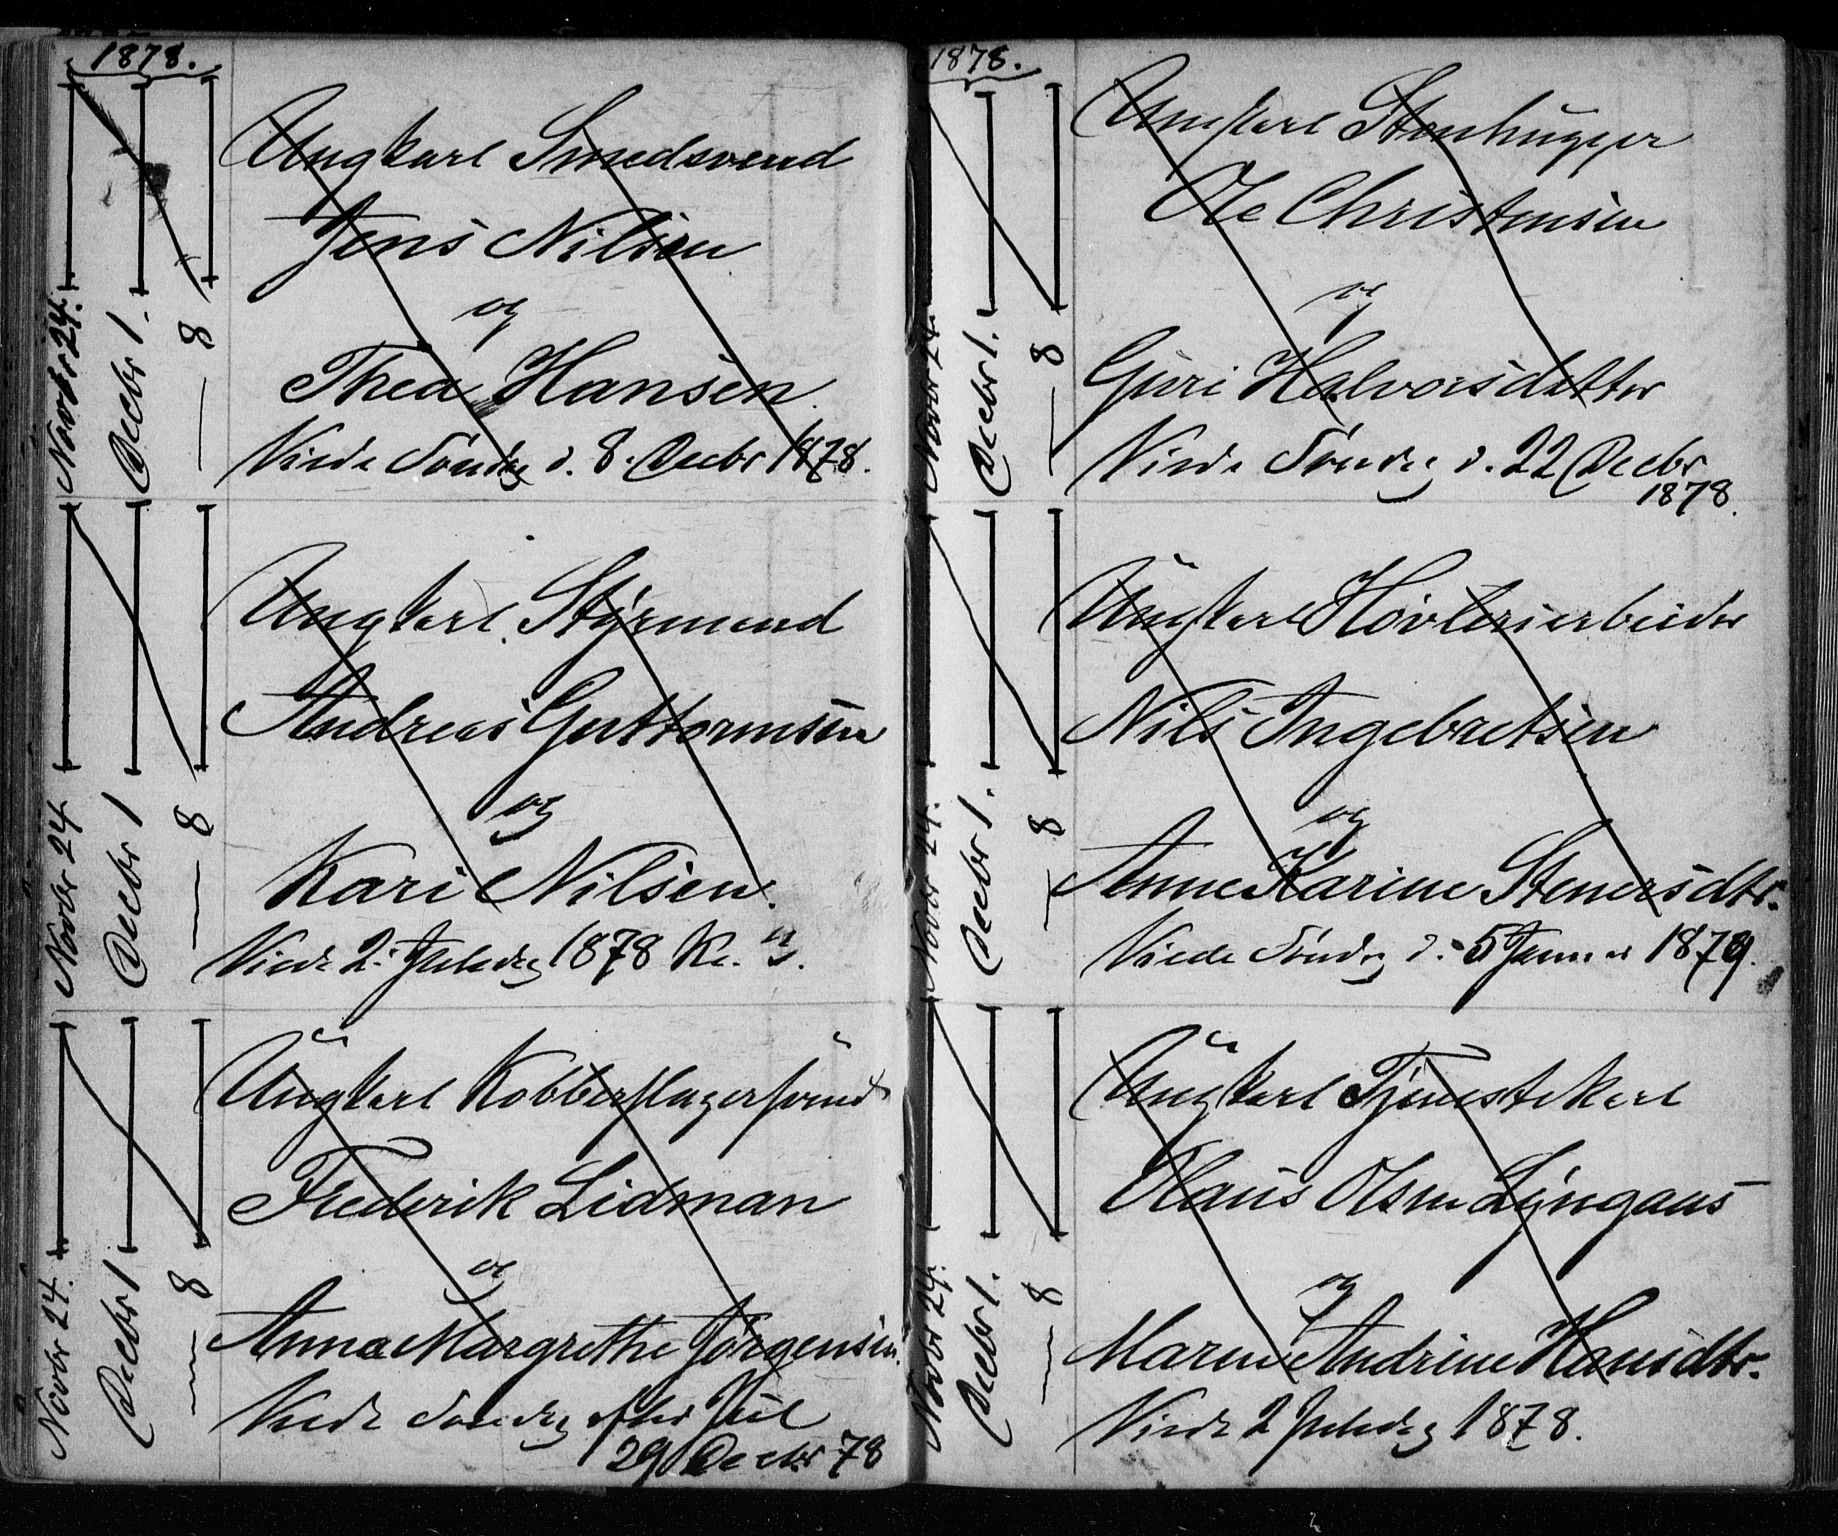 1878.
Novbr 24.
Decbr 1.
— 8
Ungkarl Smedsvend
Jens Nilsen
og
Thea Hansen
Viede Søndag d. 8. Decbr 1878.
Novbr 24
Decbr 1
— 8
Ungkarl. Styrmand
Andreas Guttormsen
og
Kari Nilsen.
Viede 2. Juledag 1878 Kl.
Novbr 24.
Decbr 1
— 8
Ungkarl Kobberslagersvend
Frederik Lidman
og
Anna Margrethe Jørgensen.
Viede Søndag efter Jul
29 Decbr 78
1878.
Novbr 24.
Decbr 1.
— 8
Ungkarl Stenhugger
Ole Christensen
og
Guri Halvorsdatter
Viede Søndag d. 22 Decbr
1878.
Novbr 24.
Decbr 1.
— 8
Ungkarl Høvleriarbeider
Nils Ingebretsen
og
Anne Karine Stenersdtr.
Viede Søndag d. 5 Januar 1879.
Novbr 24.
Decbr 1.
— 8
Ungkarl Tjenestekarl
Olaus Olsen Lyngaas
og
Maren Andrine Hansdtr.
Viede 2 Juledag 1878.